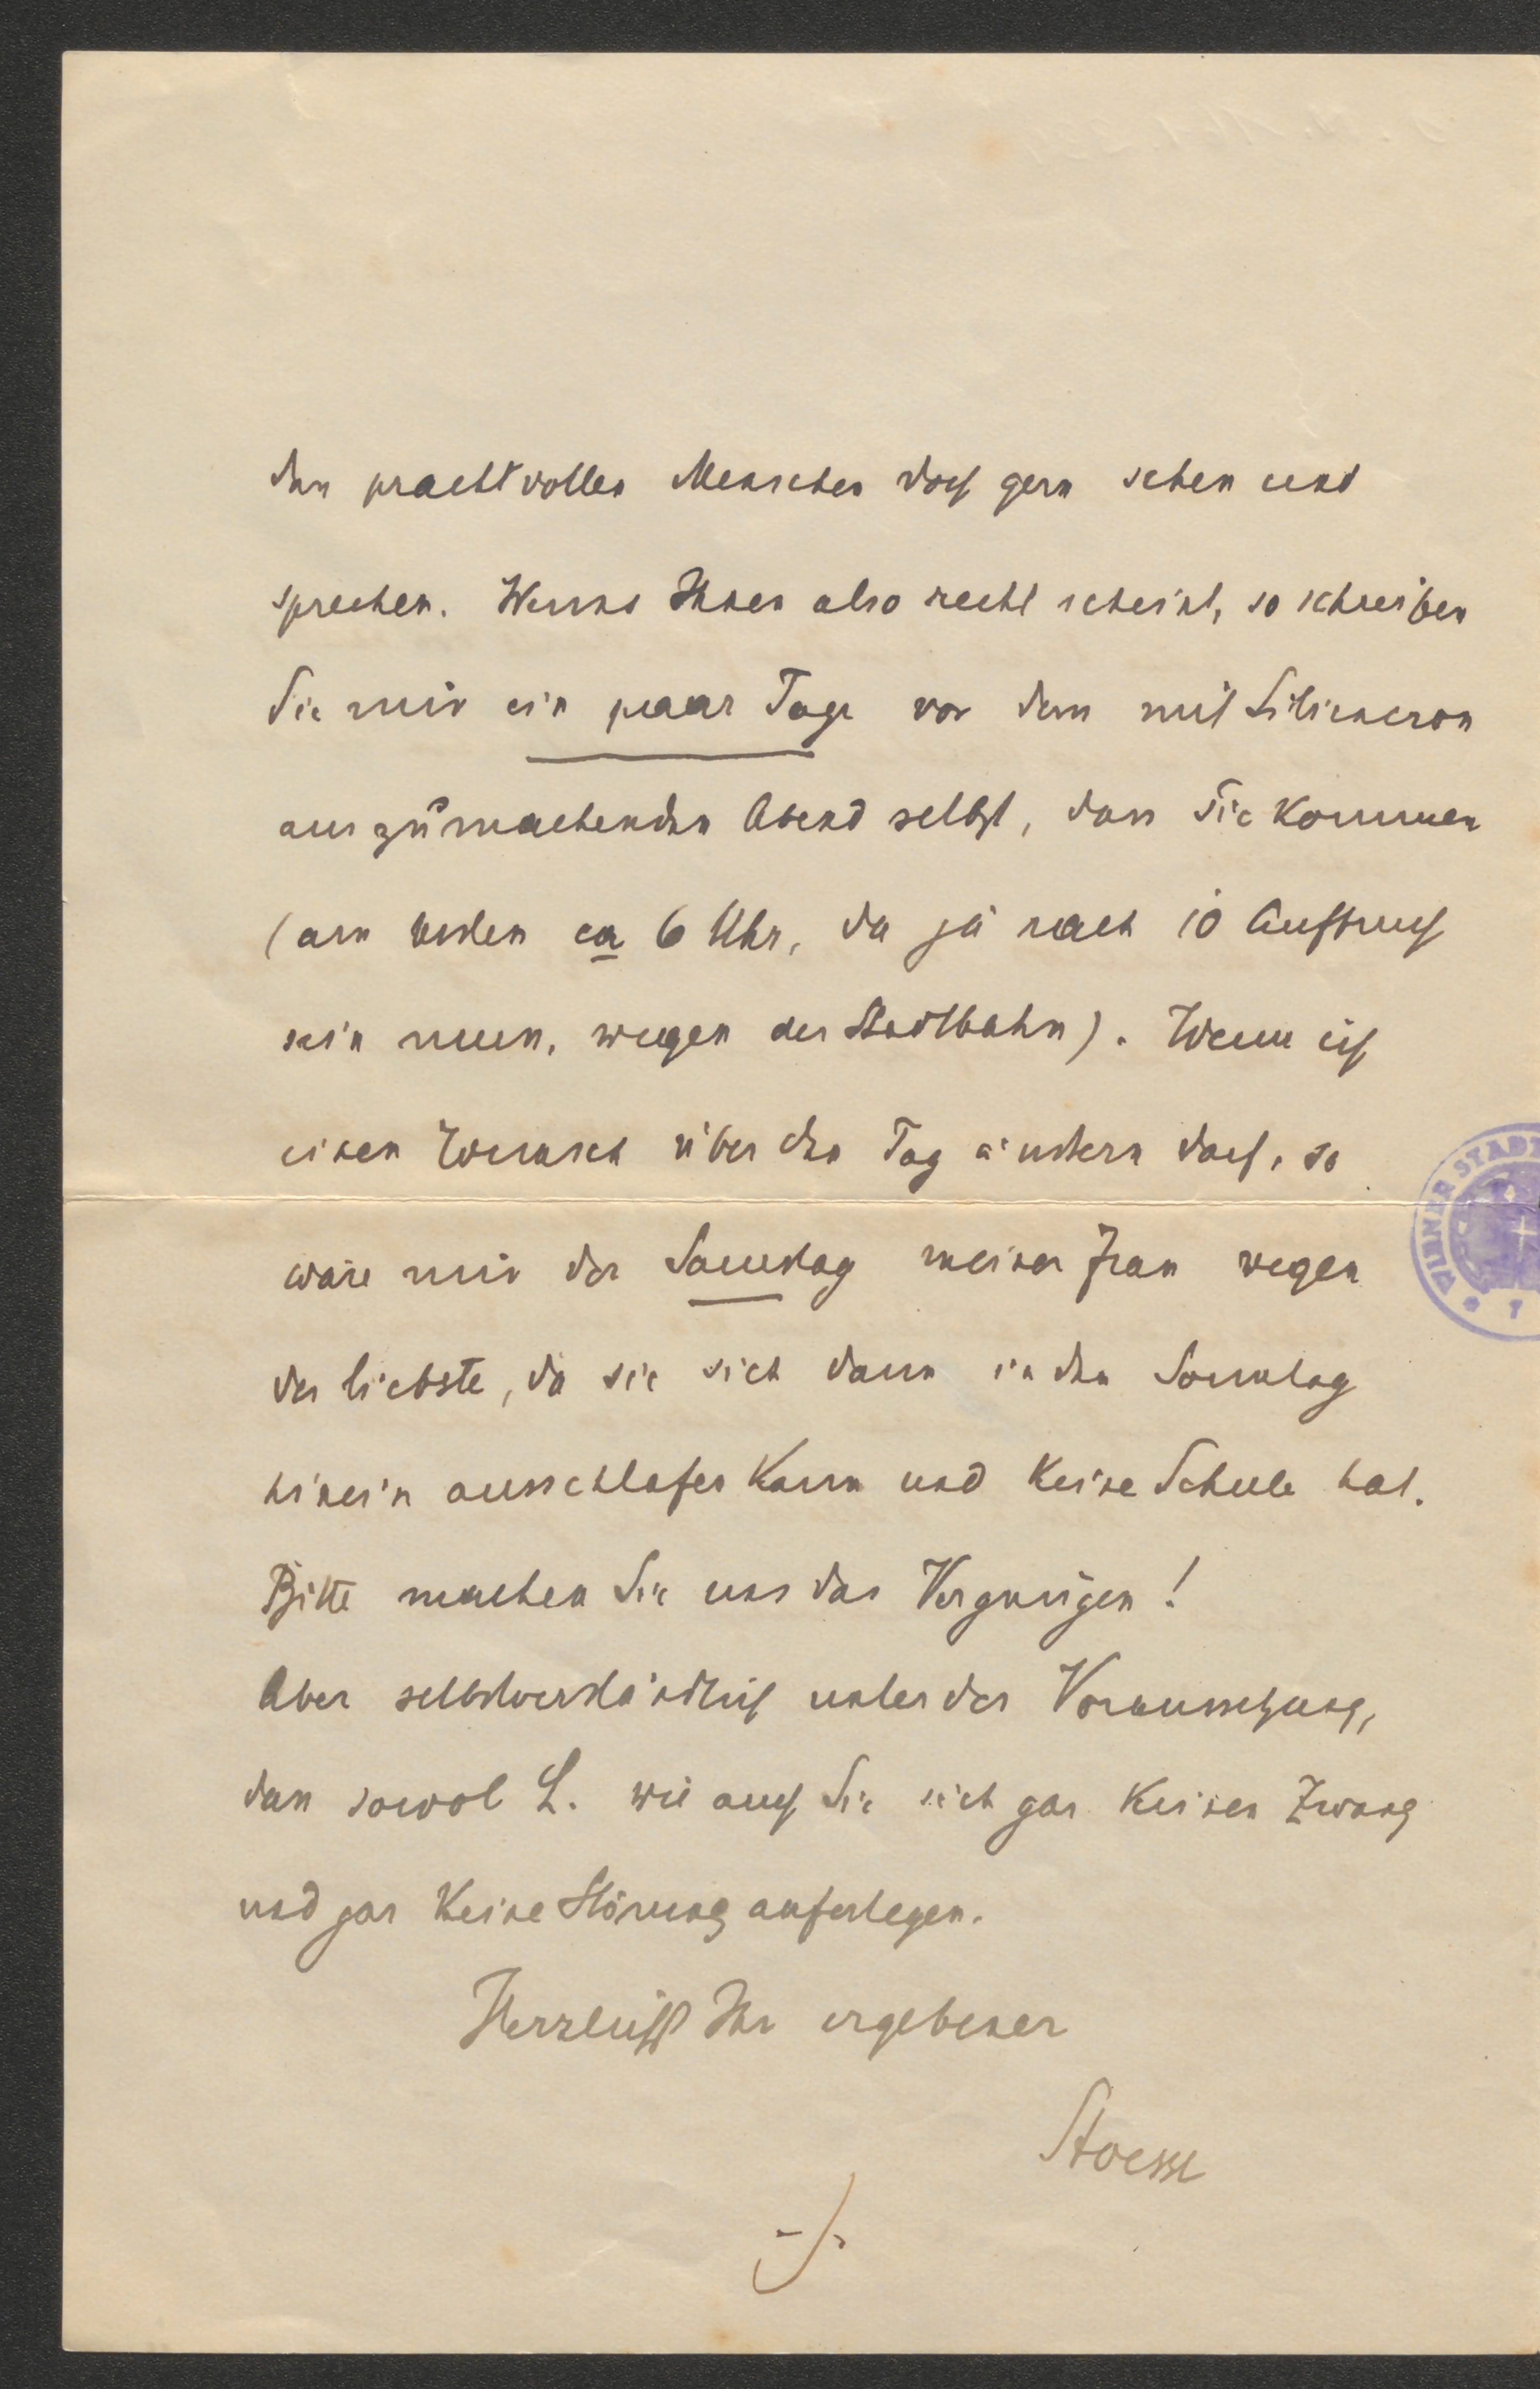 den prachtvollen Menschen doch gern sehen und
sprechen. Wenns Ihnen also recht scheint, so schreiben
Sie mir ein paar Tage vor dem mit Liliencron
auszumachenden Abend selbst, dass Sie kommen
(am besten ca 6 Uhr, da ja nach 10 Aufbruch
sein muss, wegen der Stadtbahn). Wenn ich
einen Wunsch über den Tag äussern darf, so
wäre mir der Samstag meiner Frau wegen
der liebste, da sie sich dann in den Sonntag
hinein ausschlafen kann und keine Schule hat.
Bitte machen Sie uns das Vergnügen!
Aber selbstverständlich unter der Voraussetzung,
dass sowol L. wie auch Sie sich gar keinen Zwang
und gar keine Störung auferlegen.
Herzlichst Ihr ergebener
Stoessl
WIENER STADT